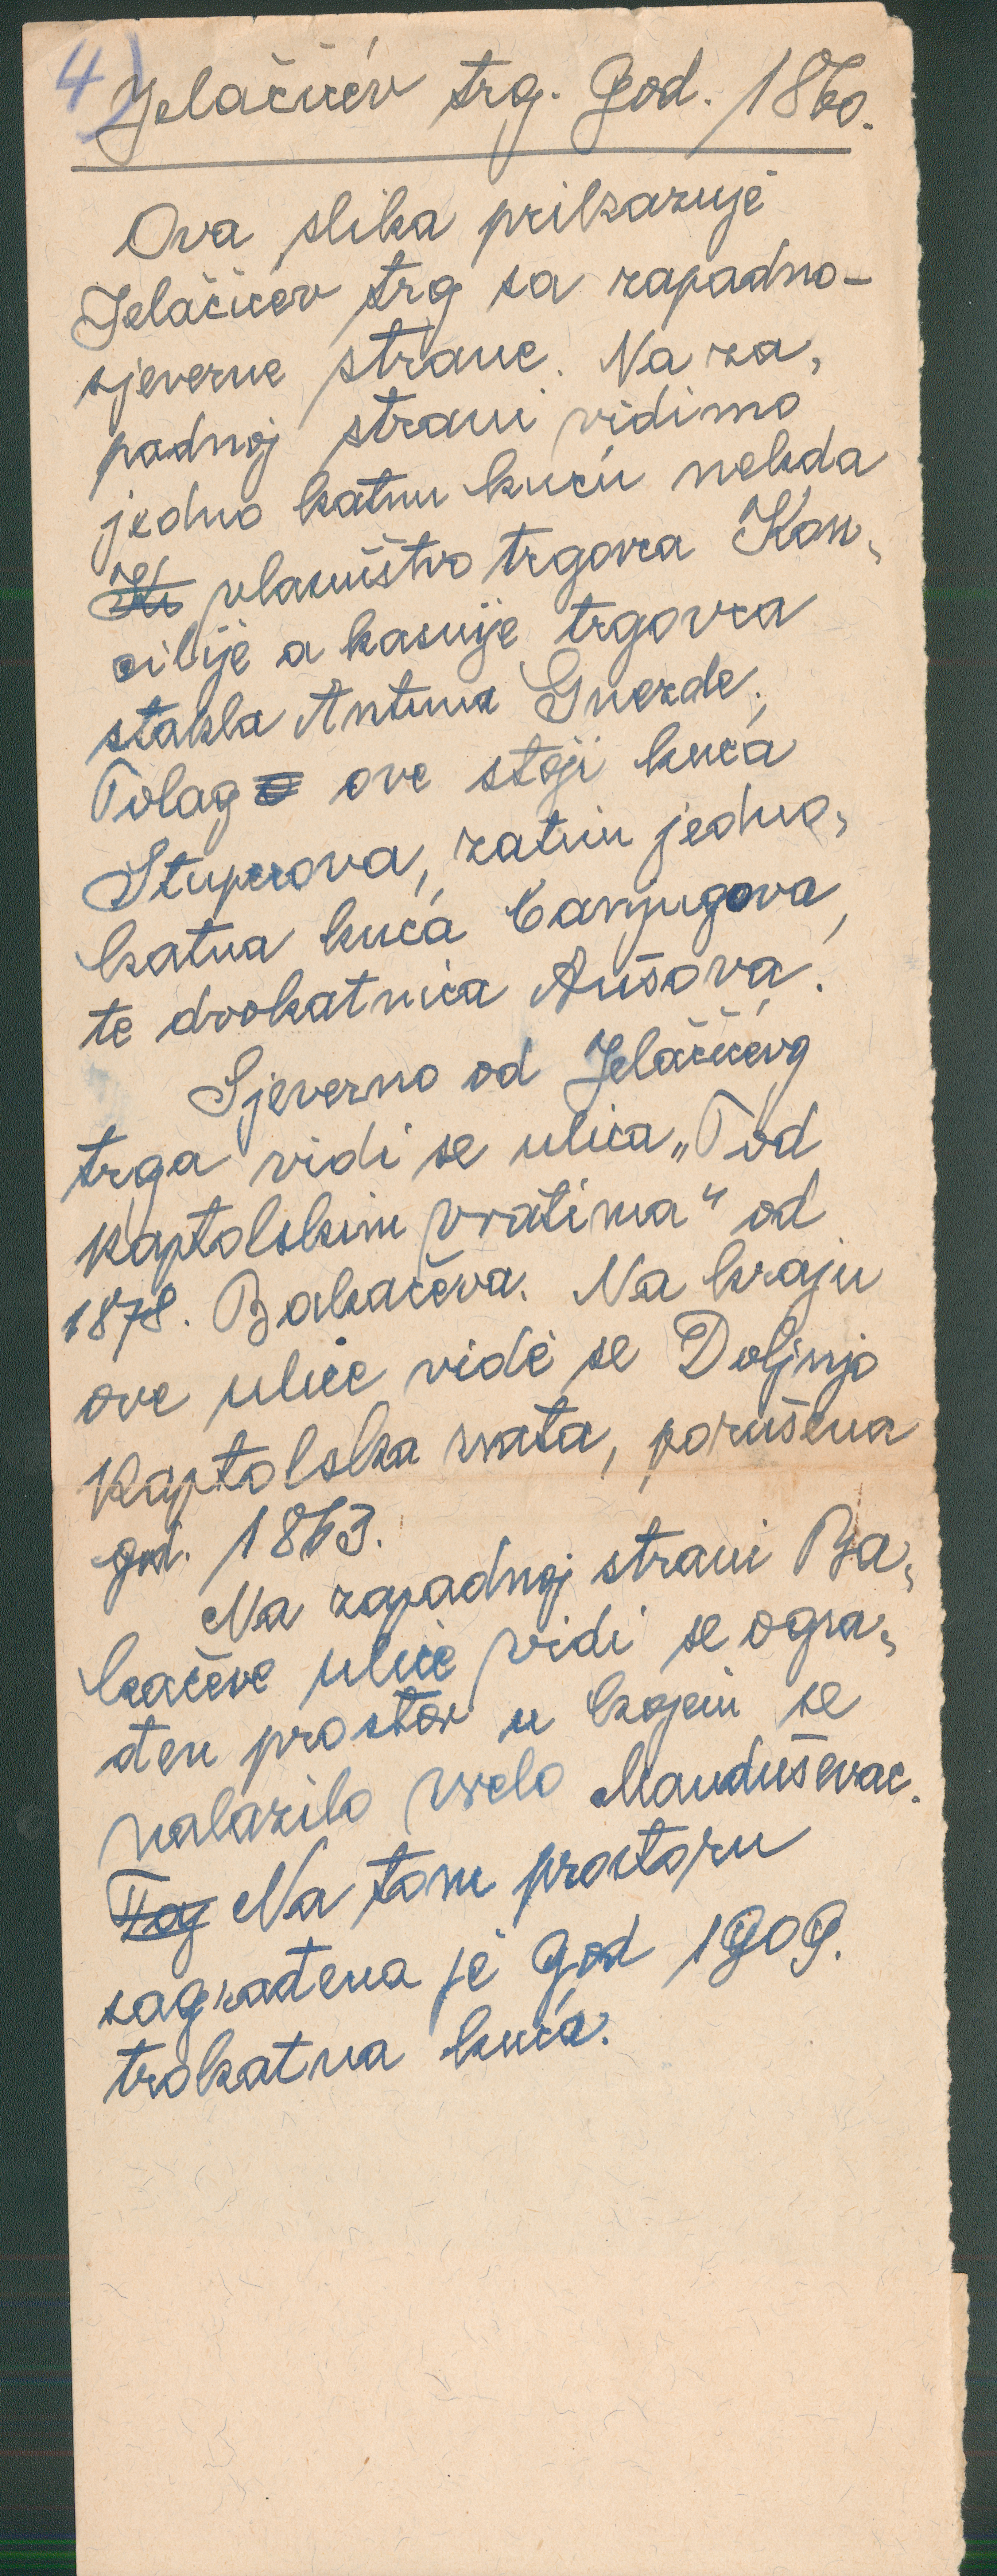 4)
Jelačićev trg. God. 1860.
Ova slika prikazuje
Jelačićev trg sa zapadno-
sjeverne strane. Na za,
padnoj strani vidimo
jedno katnu kuću nekda
vlasništvo trgovca Kon,
cilije a kasnije trgovca
stakla Antuna Gnezde.
Polag ove stoji kuća
Stuperova, zatim jedno,
katna kuća Canjugova,
te dvokatnica Aušova.
Sjeverno od Jelačićevg
trga vidi se ulica „Pod
kaptolskim vratima“ od
1878. Bakačeva. Na kraju
ove ulice vide se Doljnja
Kaptolska vrata, porušena
god. 1863.
Na zapadnoj strani Ba,
kačeve ulice vidi se ogra,
đen prostor u kojem se
nalazilo vrelo Manduševac.
Tog Na tom prostoru
sagrađena je god 1909.
trokatna kuća.